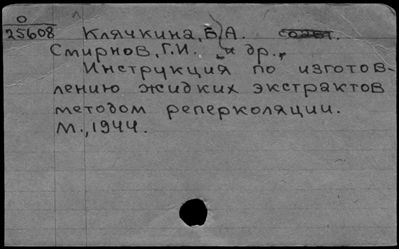 О
25608 Клячкина, В.А.
Смирнов, Г.И. и др.,
Инструкция по изготов-
лению жидких экстрактов
методом реперколяции.
М., 1944.